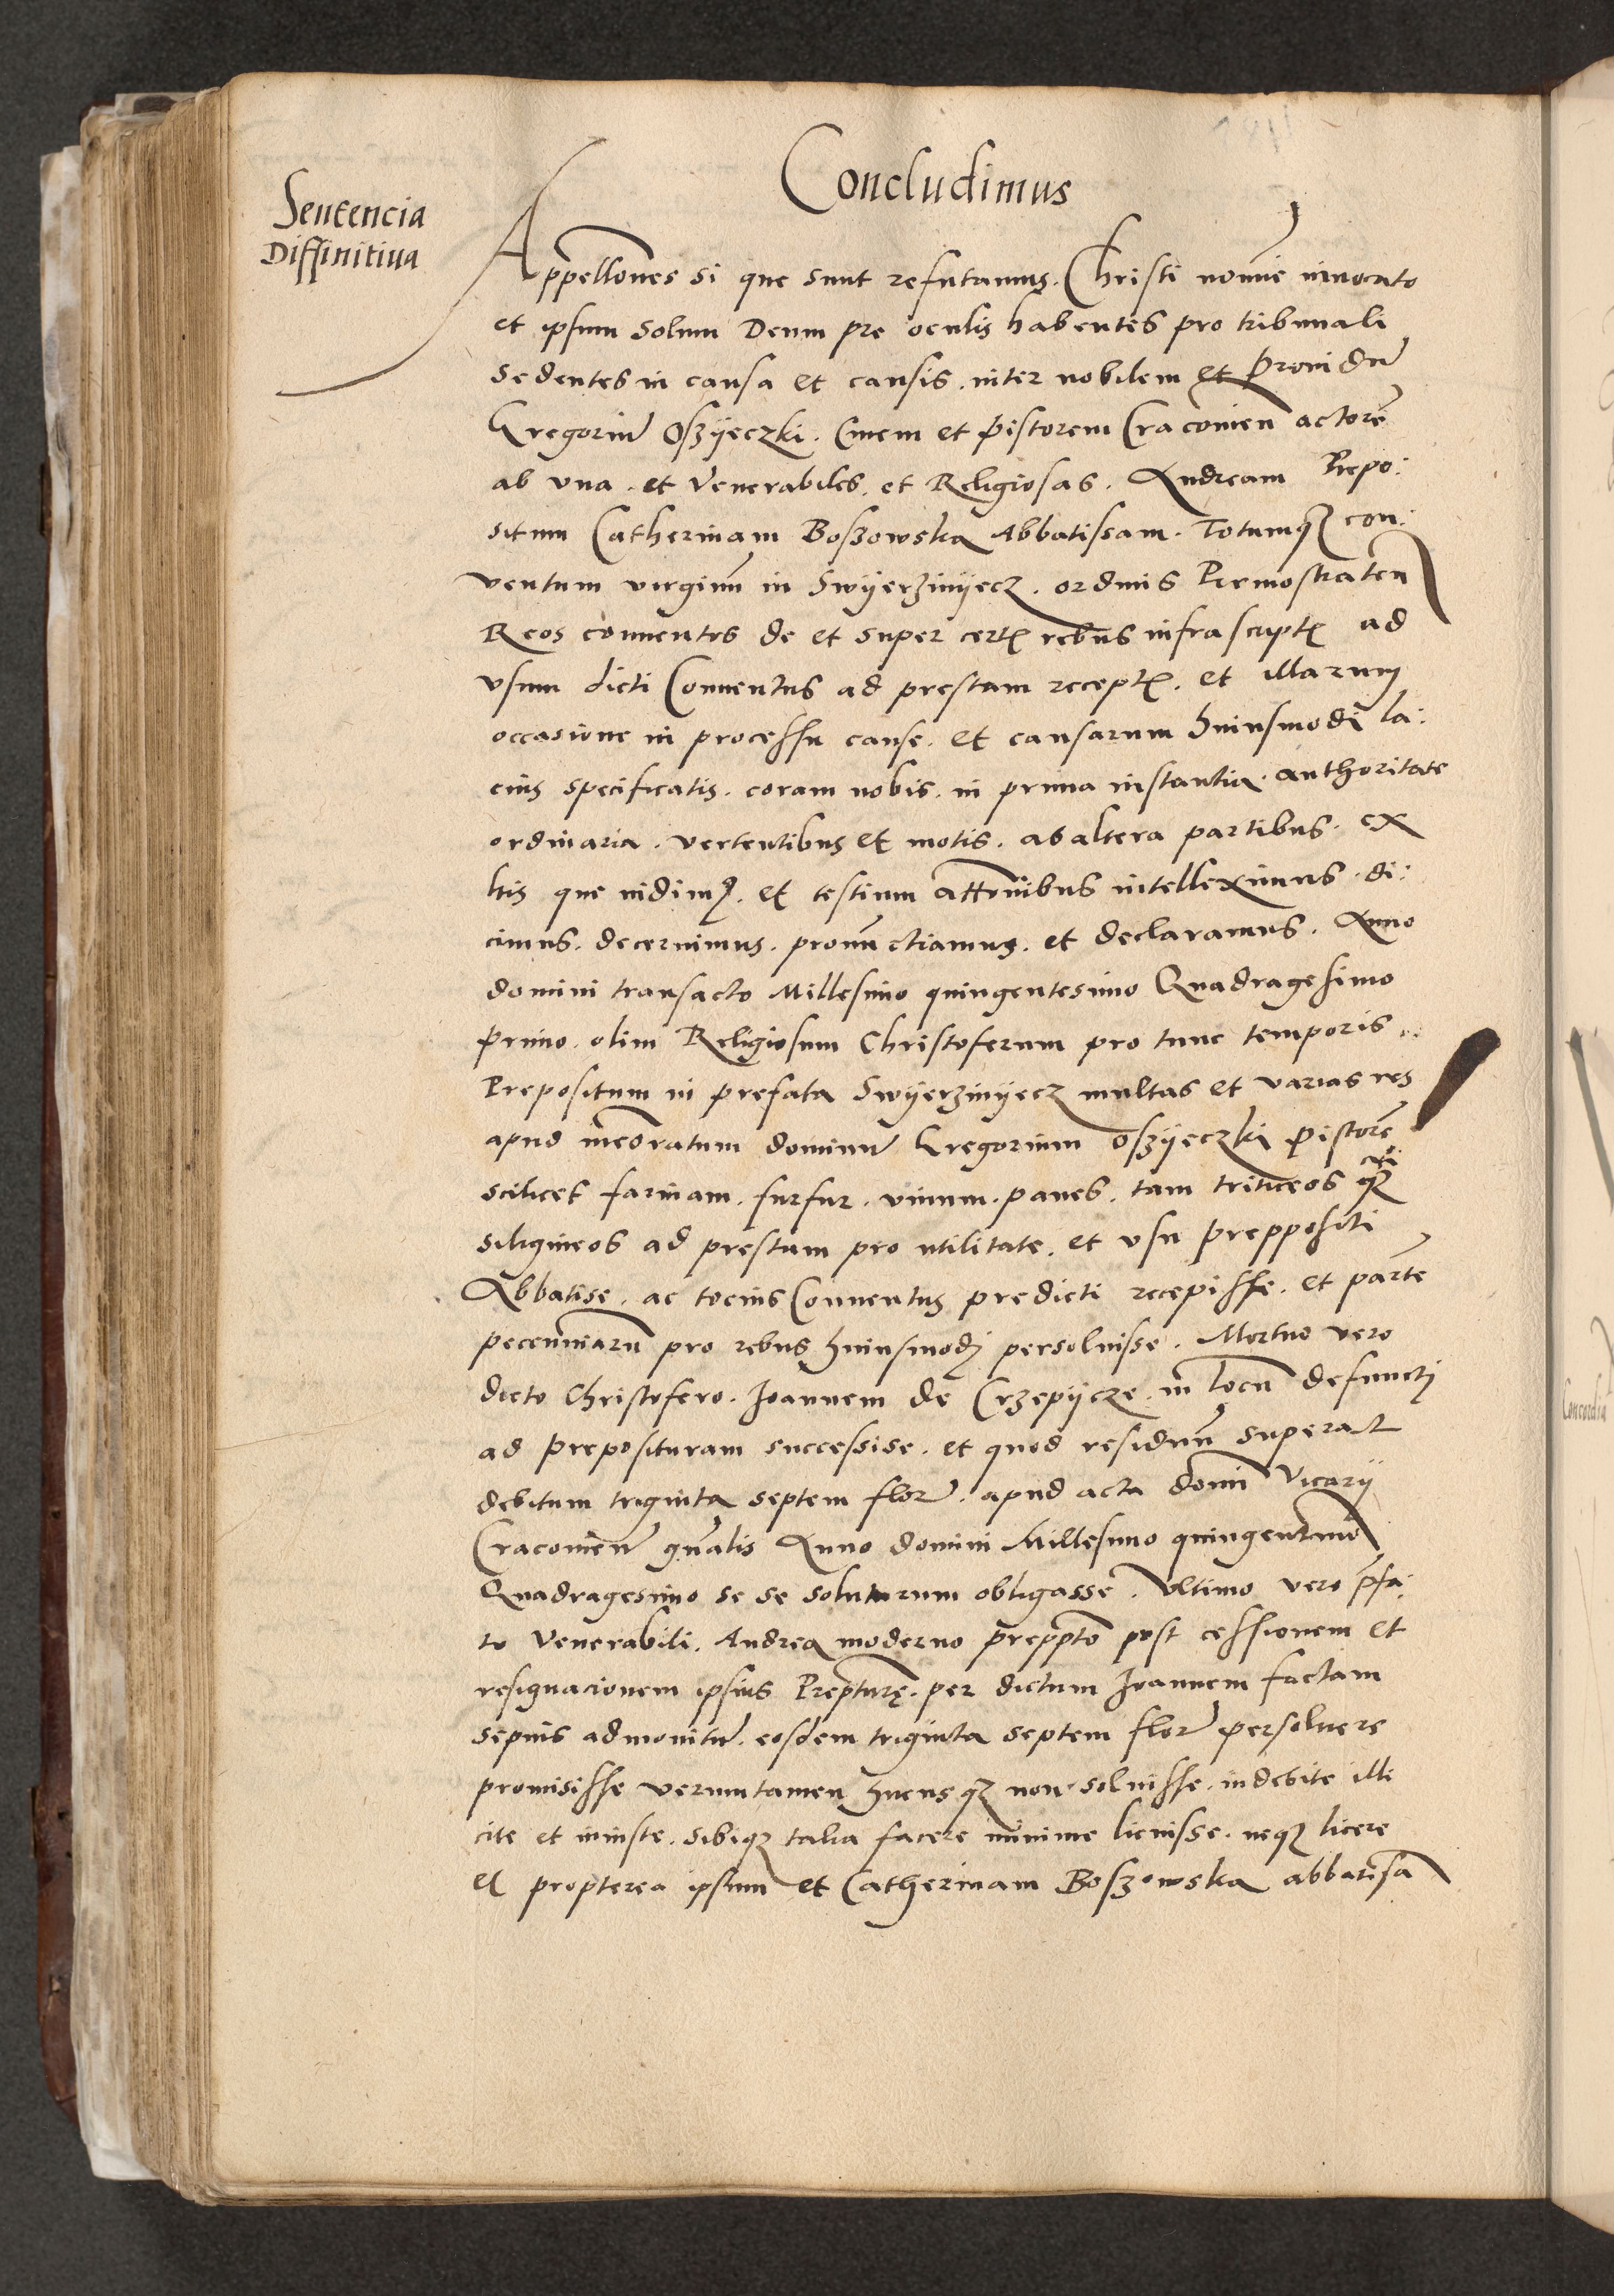 Concludimus
Sentencia
Diffinitiua
Appellones si que sunt refutamus. Christi nomie inuocato
et ipsum solum Deum pre oculis habentes pro tribunali
sedentes in causa et causis. inter nobilem et Prouidu̅
Gregoriu̅ Oszÿeczki. Ciuem et pistorem Cracouien̅ actore̅
ab vna. et Venerabiles. et Religiosas. Andream Prepo:
situm Catherinam Boszowska Abbatissam. Totumqꝫ con:
ventum virginu̅ in Swÿerzinÿecz. ordinis Premostraten̅
Reos conuentos de et super certꝭ rebus infrascriptꝭ ad
vsum dicti Conuentus ad prestam receptꝭ. et illarum
occasione in processu cause. et causarum huiusmodi la:
cius specificatis. coram nobis. in prima instantia. authoritate
ordinaria. vertentibus et motis. ab altera partibus. ex
his que vidimꝰ. et testium attonibus intelleximus. di:
cimus. decernimus. pronu̅ctiamus. et declaramus. Anno
domini transacto Millesimo quingentesimo Quadragesimo
primo. olim Religiosum Christoferum pro tunc temporis..
Prepositum in prefata Swÿerzinÿecz multas et varias res
apud meoratum dominu̅ Gregorium Oszÿeczki pistore̅
scilicet farinam. furfur. vinum. panes. tam triticeos qꝫ
siligineos ad prestum pro utilitate. et vsu preppositi
Abbatise. ac tocius Conuentus predicti recepisse. et parte̅
pecunniaru̅ pro rebus huiusmodj persoluisse. Mortuo vero
dicto Christofero. Joannem de Crzepÿcze. in locu̅ defunctj
ad preposituram successise. et quod residuu̅ superat
debitum triginta septem flor̅. apud acta domi̅ Vicarÿ
Cracouien̅ gn̅alis Anno domini Millesimo quingentimo̅
Quadragesimo se se soluturum obligasse. Vltimo vero p̅fa:
to Venerabili. Andrea moderno preppto̅ post cessionem et
resignacionem ipsius Prepturę. per dictum Joannem factam
sepius admonitu̅. eosdem triginta septem flor̅ persoluere
promisisse veruntamen hucusqꝫ non soluisse. indebite illi
cite et iniuste. sibiqꝫ talia facere minime licuisse. neqꝫ licere
et propterea ipsum et Catherinam Boszowska abbatisa̅
Concordia